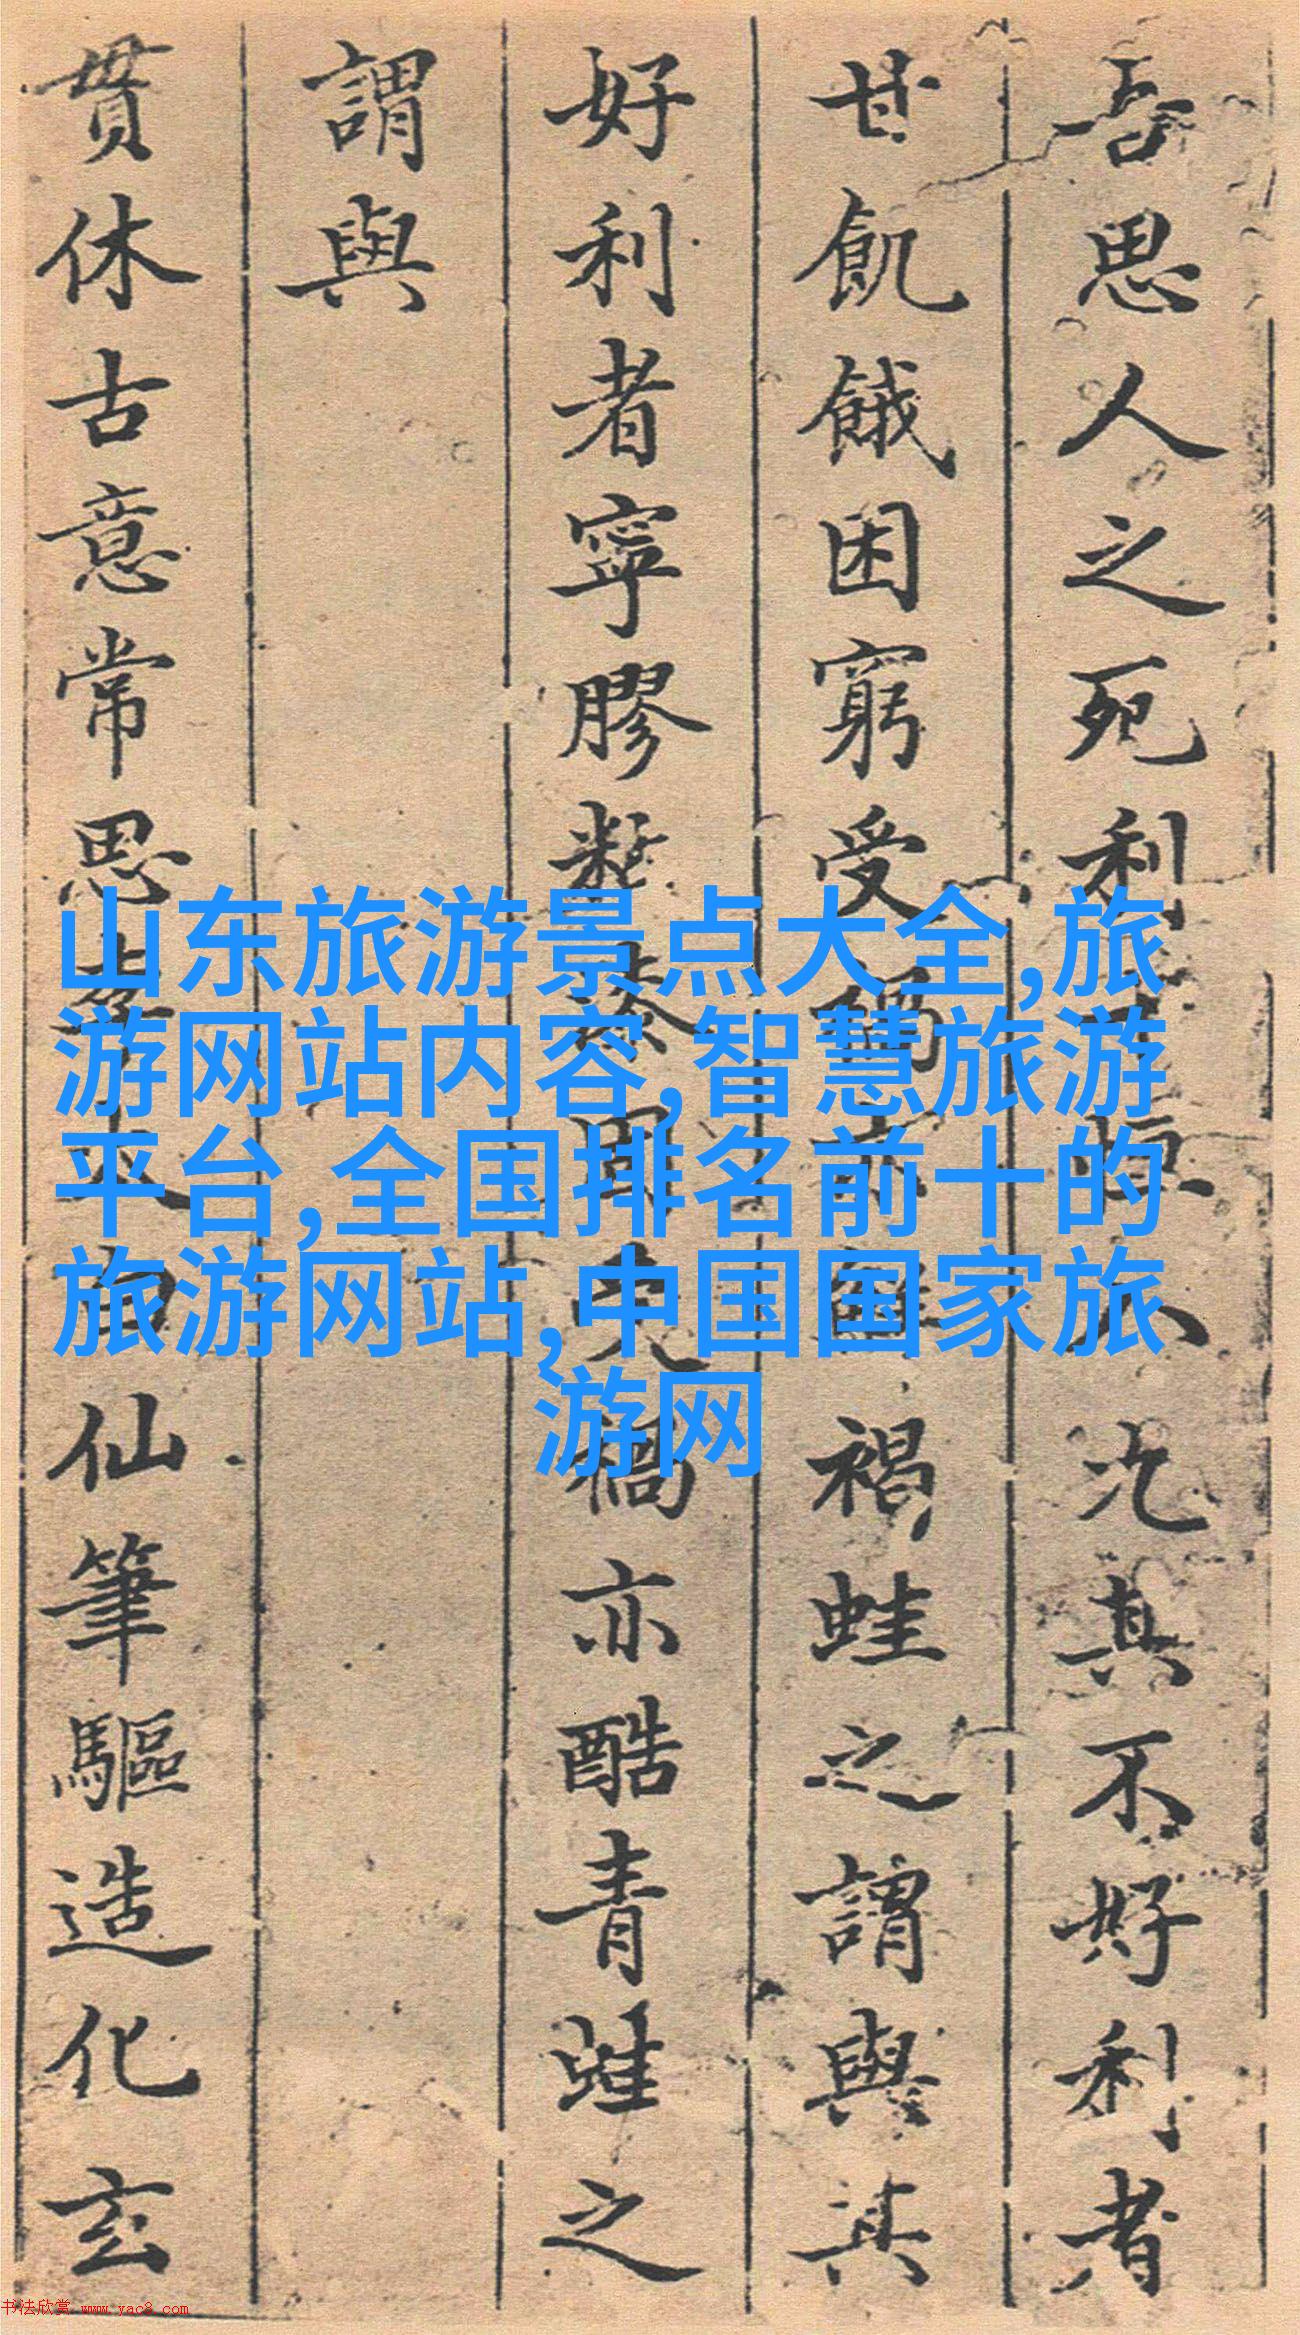 吾思人之死利
汽其不好利者
甘飢餓困窮受禍亦
褐蛙之謂與其
好利者寧膠
固
禍亦酷青蛙之
謂與
貫休古意常思李太白仙筆驅造化玄
山东旅游景点大全,旅
游网站内容,智慧旅游
平台,全国排名前十的
旅游网站,中国国家旅
游网
书法欣赏 www.yac8.com